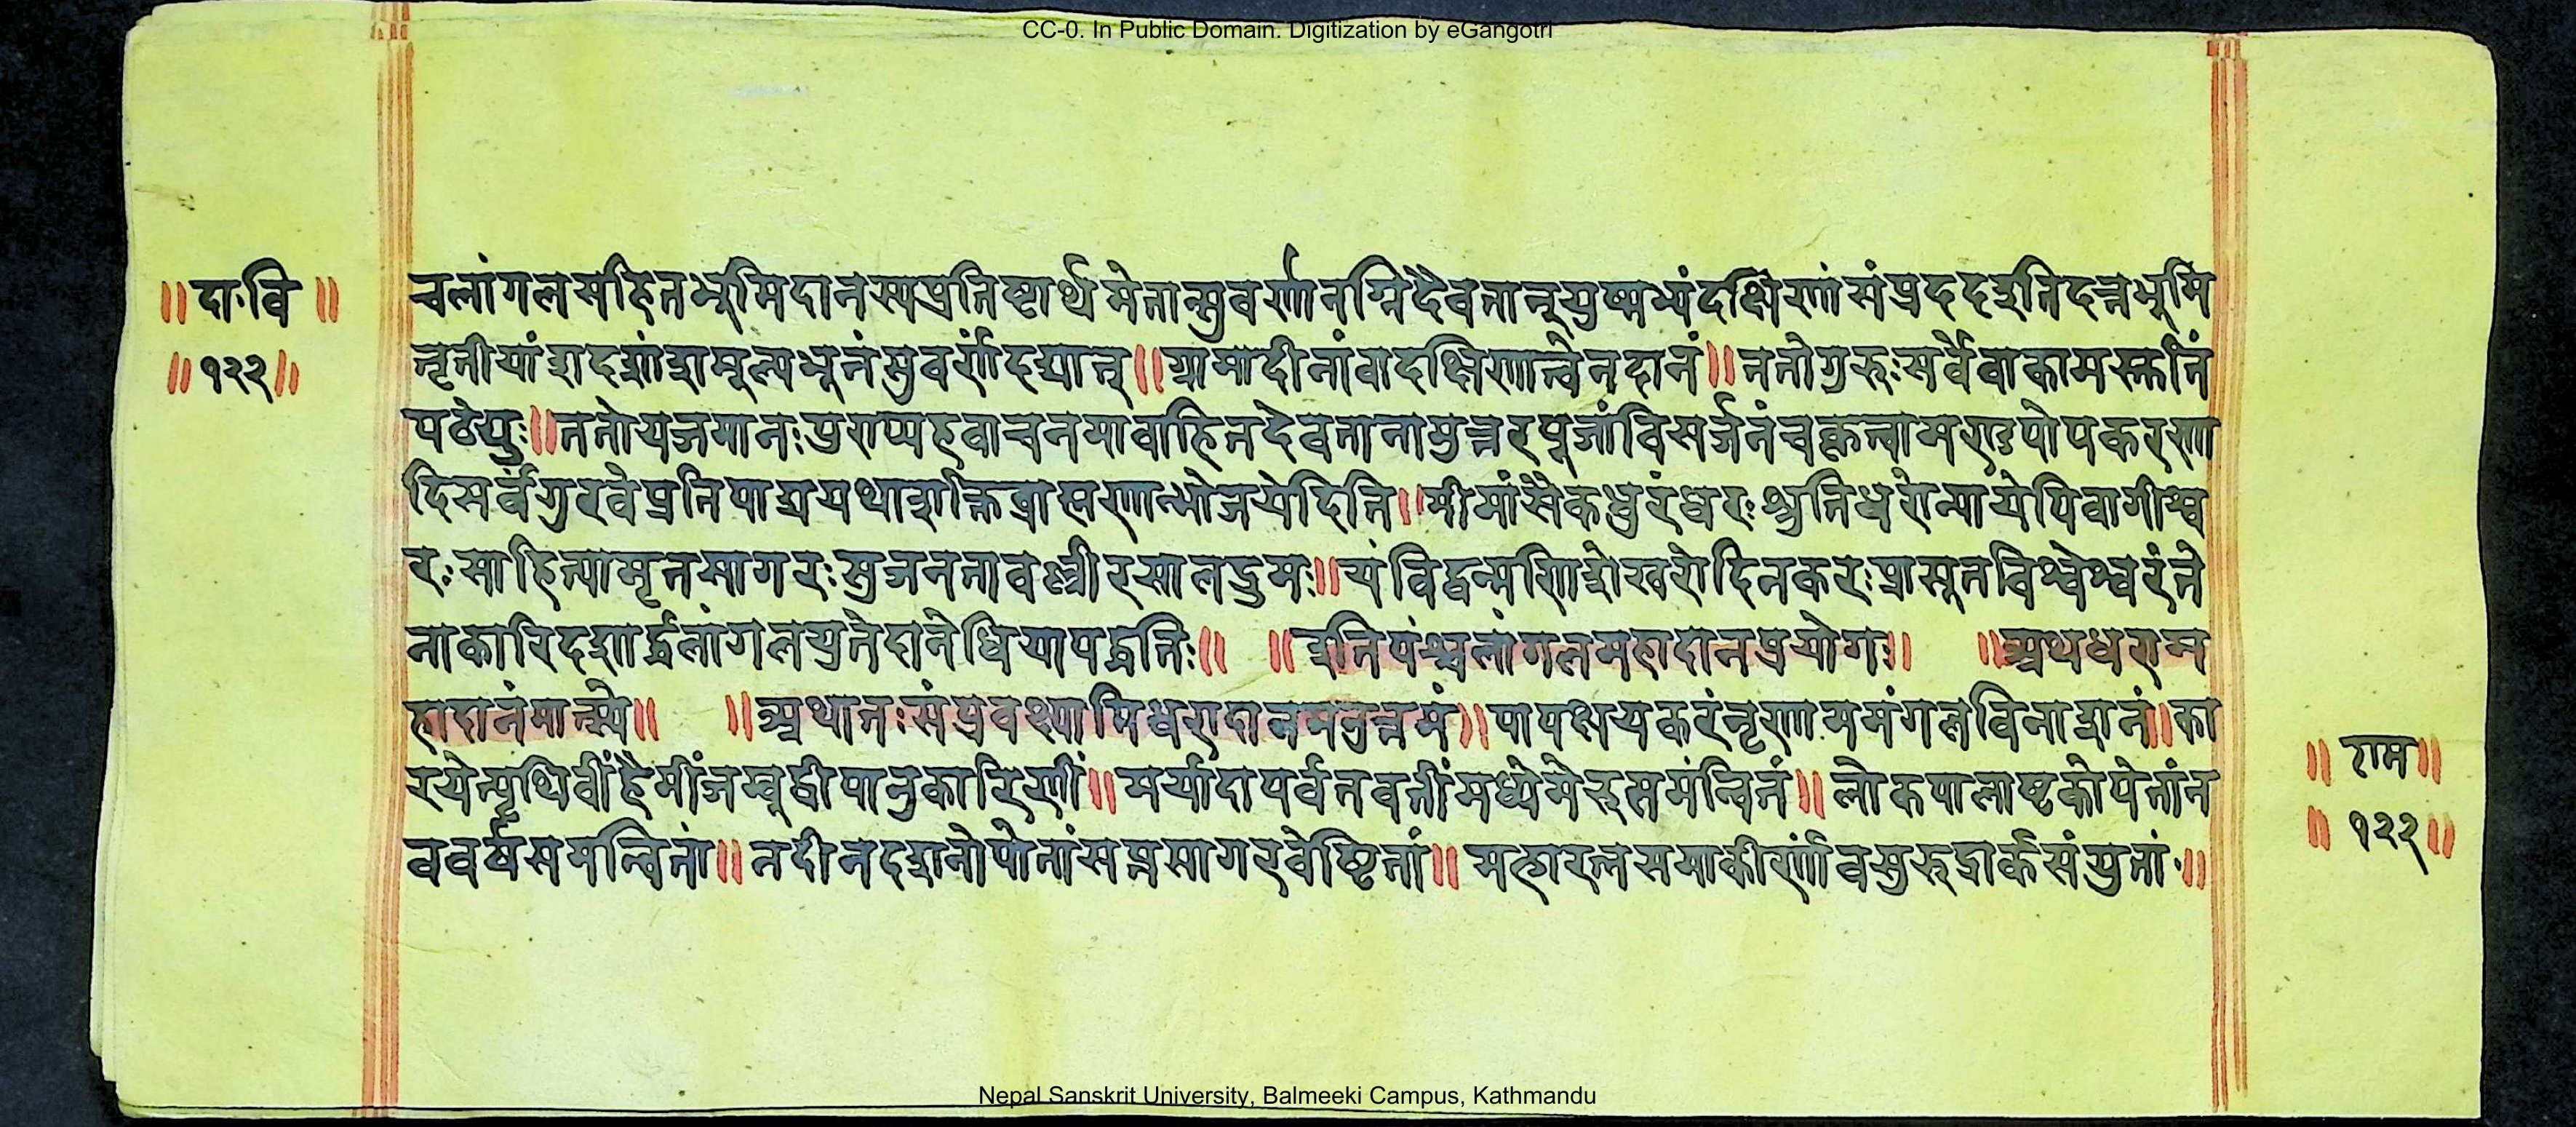 CC-0. In Public Domain. Digitization by eGangotri
॥दा॰वि॥
॥१२२॥
चलांगलसहितभूमिदानस्यप्रतिष्ठार्थमेतान्सुवर्णानग्निदैवतान्युष्मभ्यंदक्षिणांसंप्रददइतिदत्तभूमि
तृतीयांशदशांशमूल्यभूतंसुवर्णंदद्यात्॥ग्रामादीनांवादक्षिणात्वेनदानं॥ततोगुरुःसर्वेवाकामस्तुतिं
पठेयुः॥ततोयजमानःपुण्याहवाचनमावाहितदेवतानामुत्तरपूजांविसर्जनंचकृत्वामण्डपोपकरणा
दिसर्वंगुरवेप्रतिपाद्ययथाशक्तिब्राह्मणान्भोजयेदिति॥मीमांसैकधुरंधरःश्रुतिधरोन्यायेपिवागीश्व
रःसाहित्यामृतसागरःसुजनतावल्लीरसालद्रुमः॥यंविद्वन्मणिशेखरोदिनकरःप्रासूतविश्वेश्वरंते
नाकारिदशार्द्धलांगलयुतेदानेधियापद्धतिः॥ ॥इतिपंचलांगलमहादानप्रयोगः॥ ॥अथधराम
हादानंमात्स्ये॥ ॥अथातःसंप्रवक्ष्यामिधरादानमनुत्तमं॥पापक्षयकरंनृणाममंगलविनाशनं॥का
रयेत्पृथिवींहैमींजम्बूद्वीपानुकारिणीं॥मर्यादापर्वतवतींमध्येमेरुसमन्वितं॥लोकपालाष्टकोपेतांन
ववर्षसमन्वितां॥नदीनदशतोपेतांसप्तसागरवेष्टितां॥महारत्नसमाकीर्णांवसुरुद्रार्कसंयुतां॥
॥राम॥
॥१२२॥
Nepal Sanskrit University, Balmeeki Campus, Kathmandu